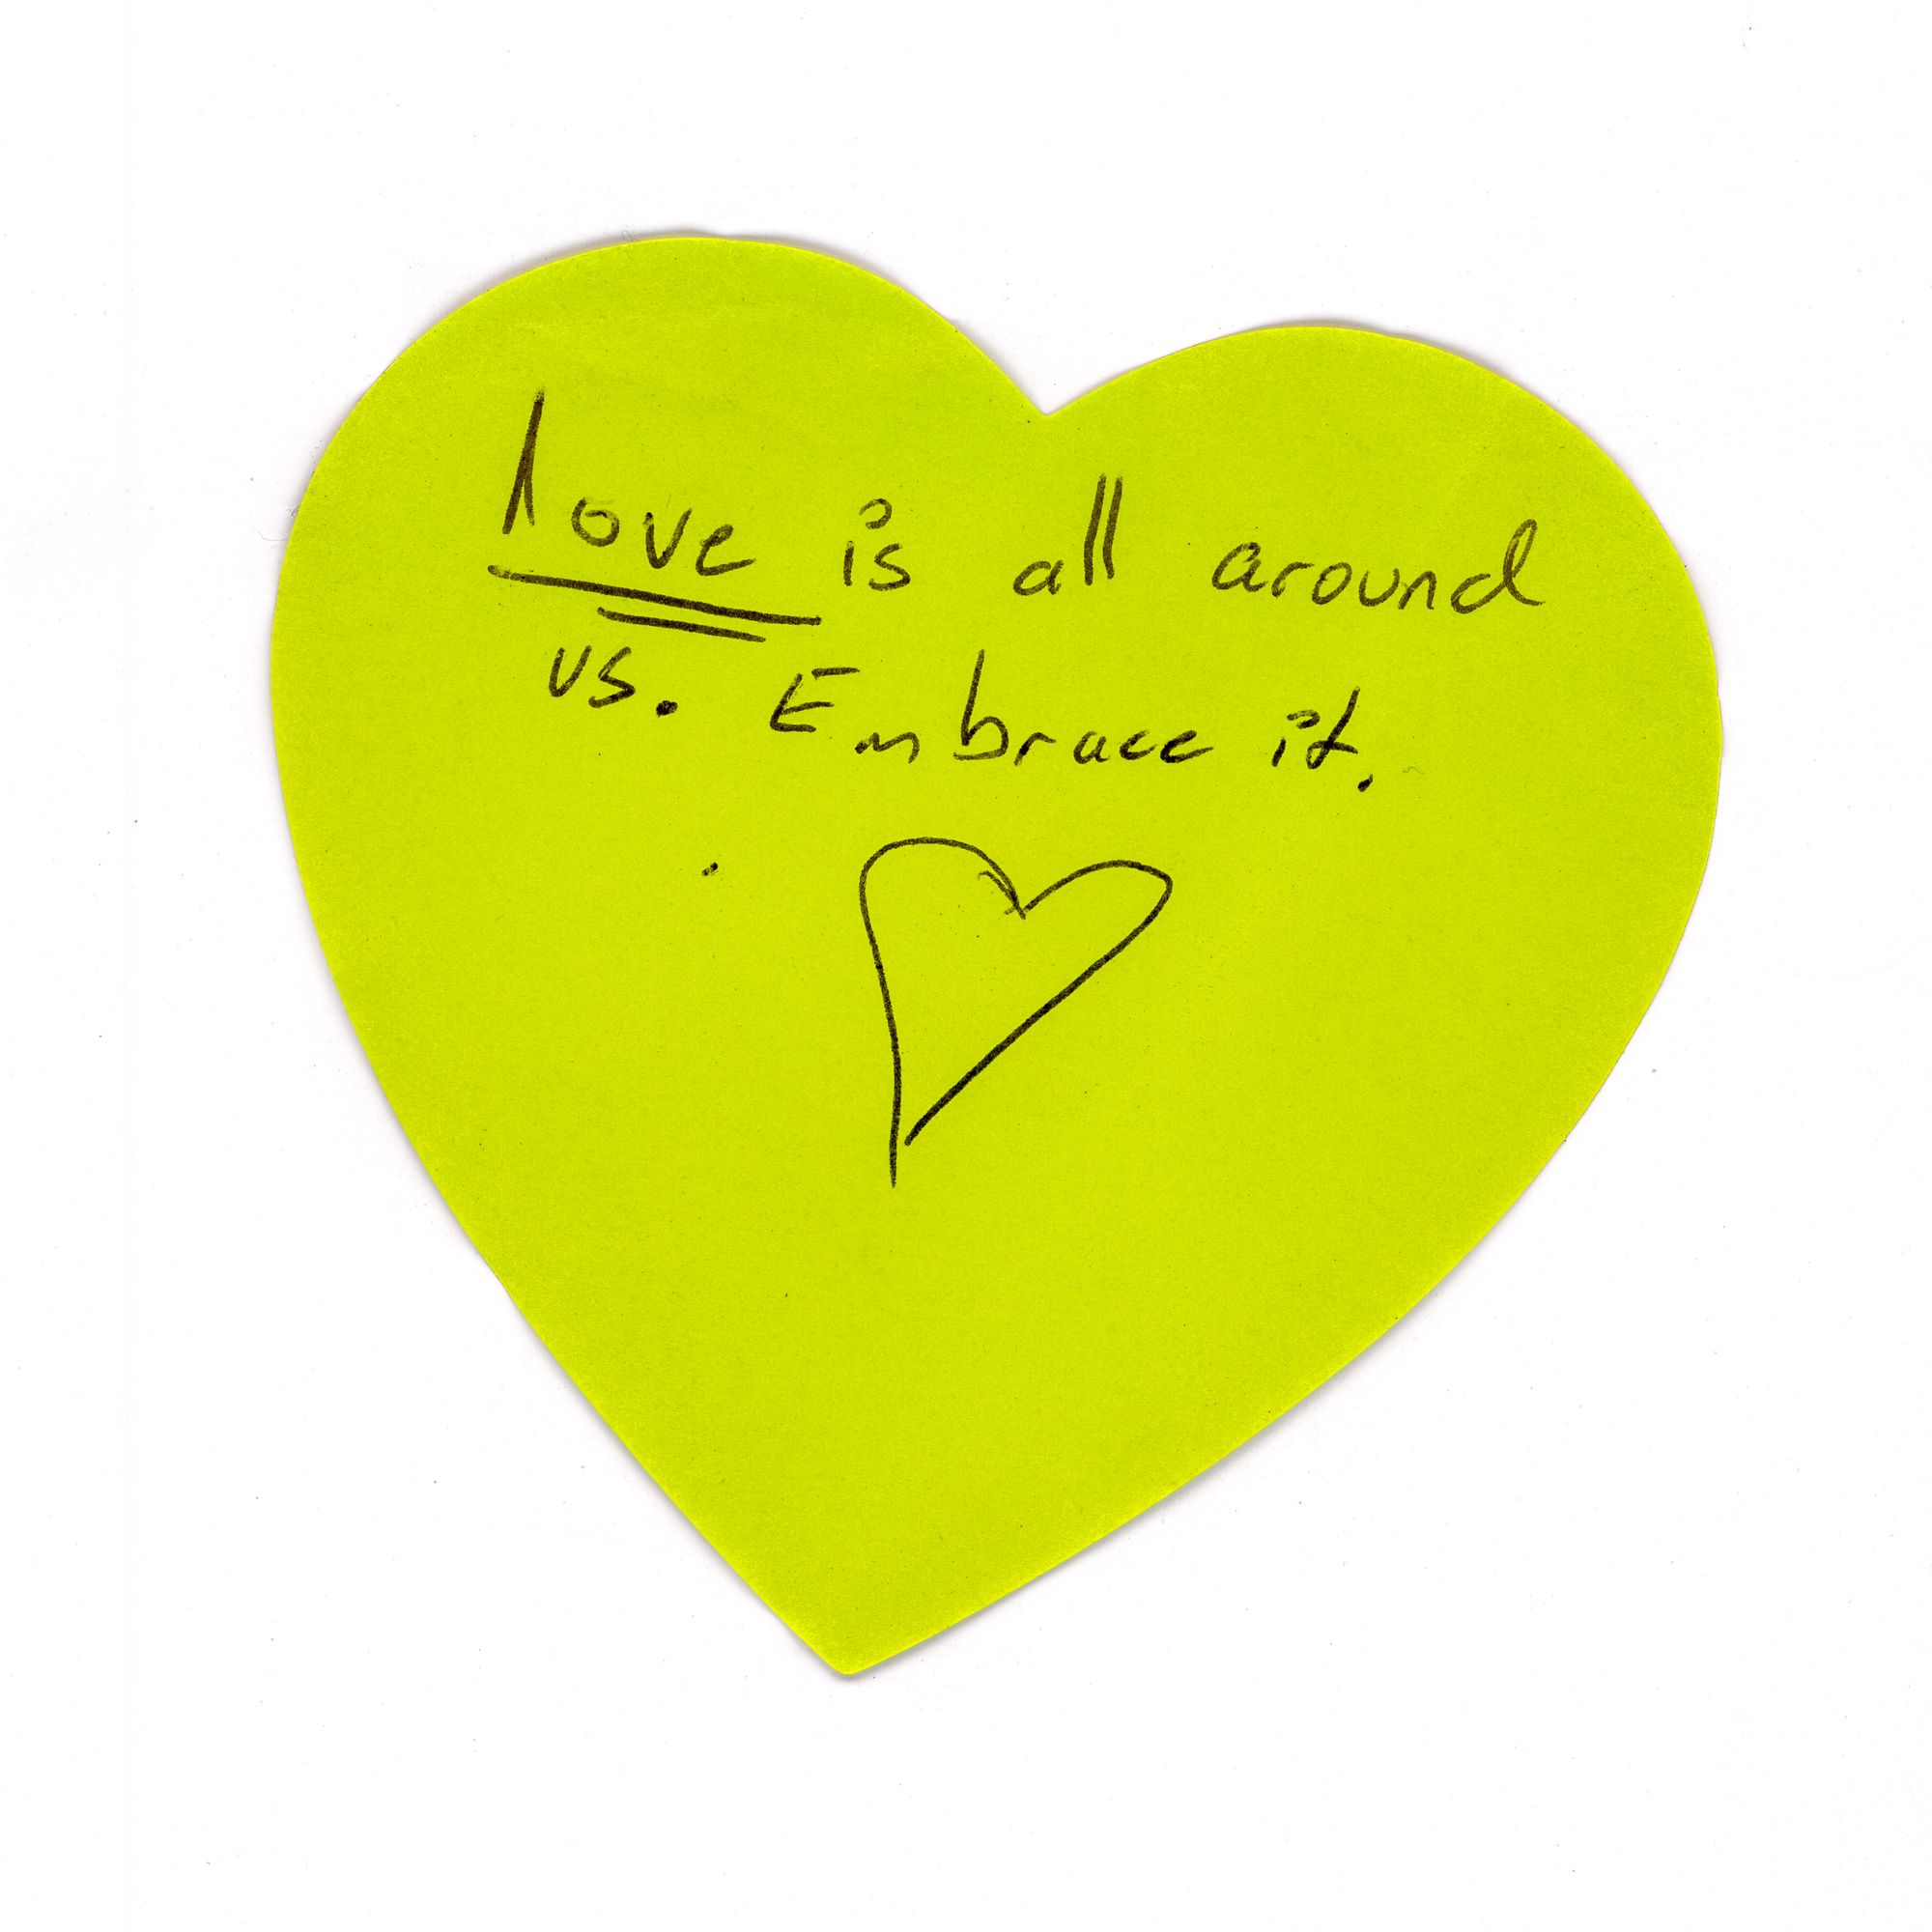 Love is all around
us. Embrace it.